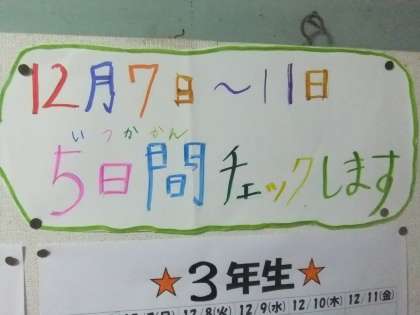 12月7日～11日
いつかかん
5日間チェックします
★3年生★
12/8(火) 12/9(水) 12/10(木) 12/11(金)